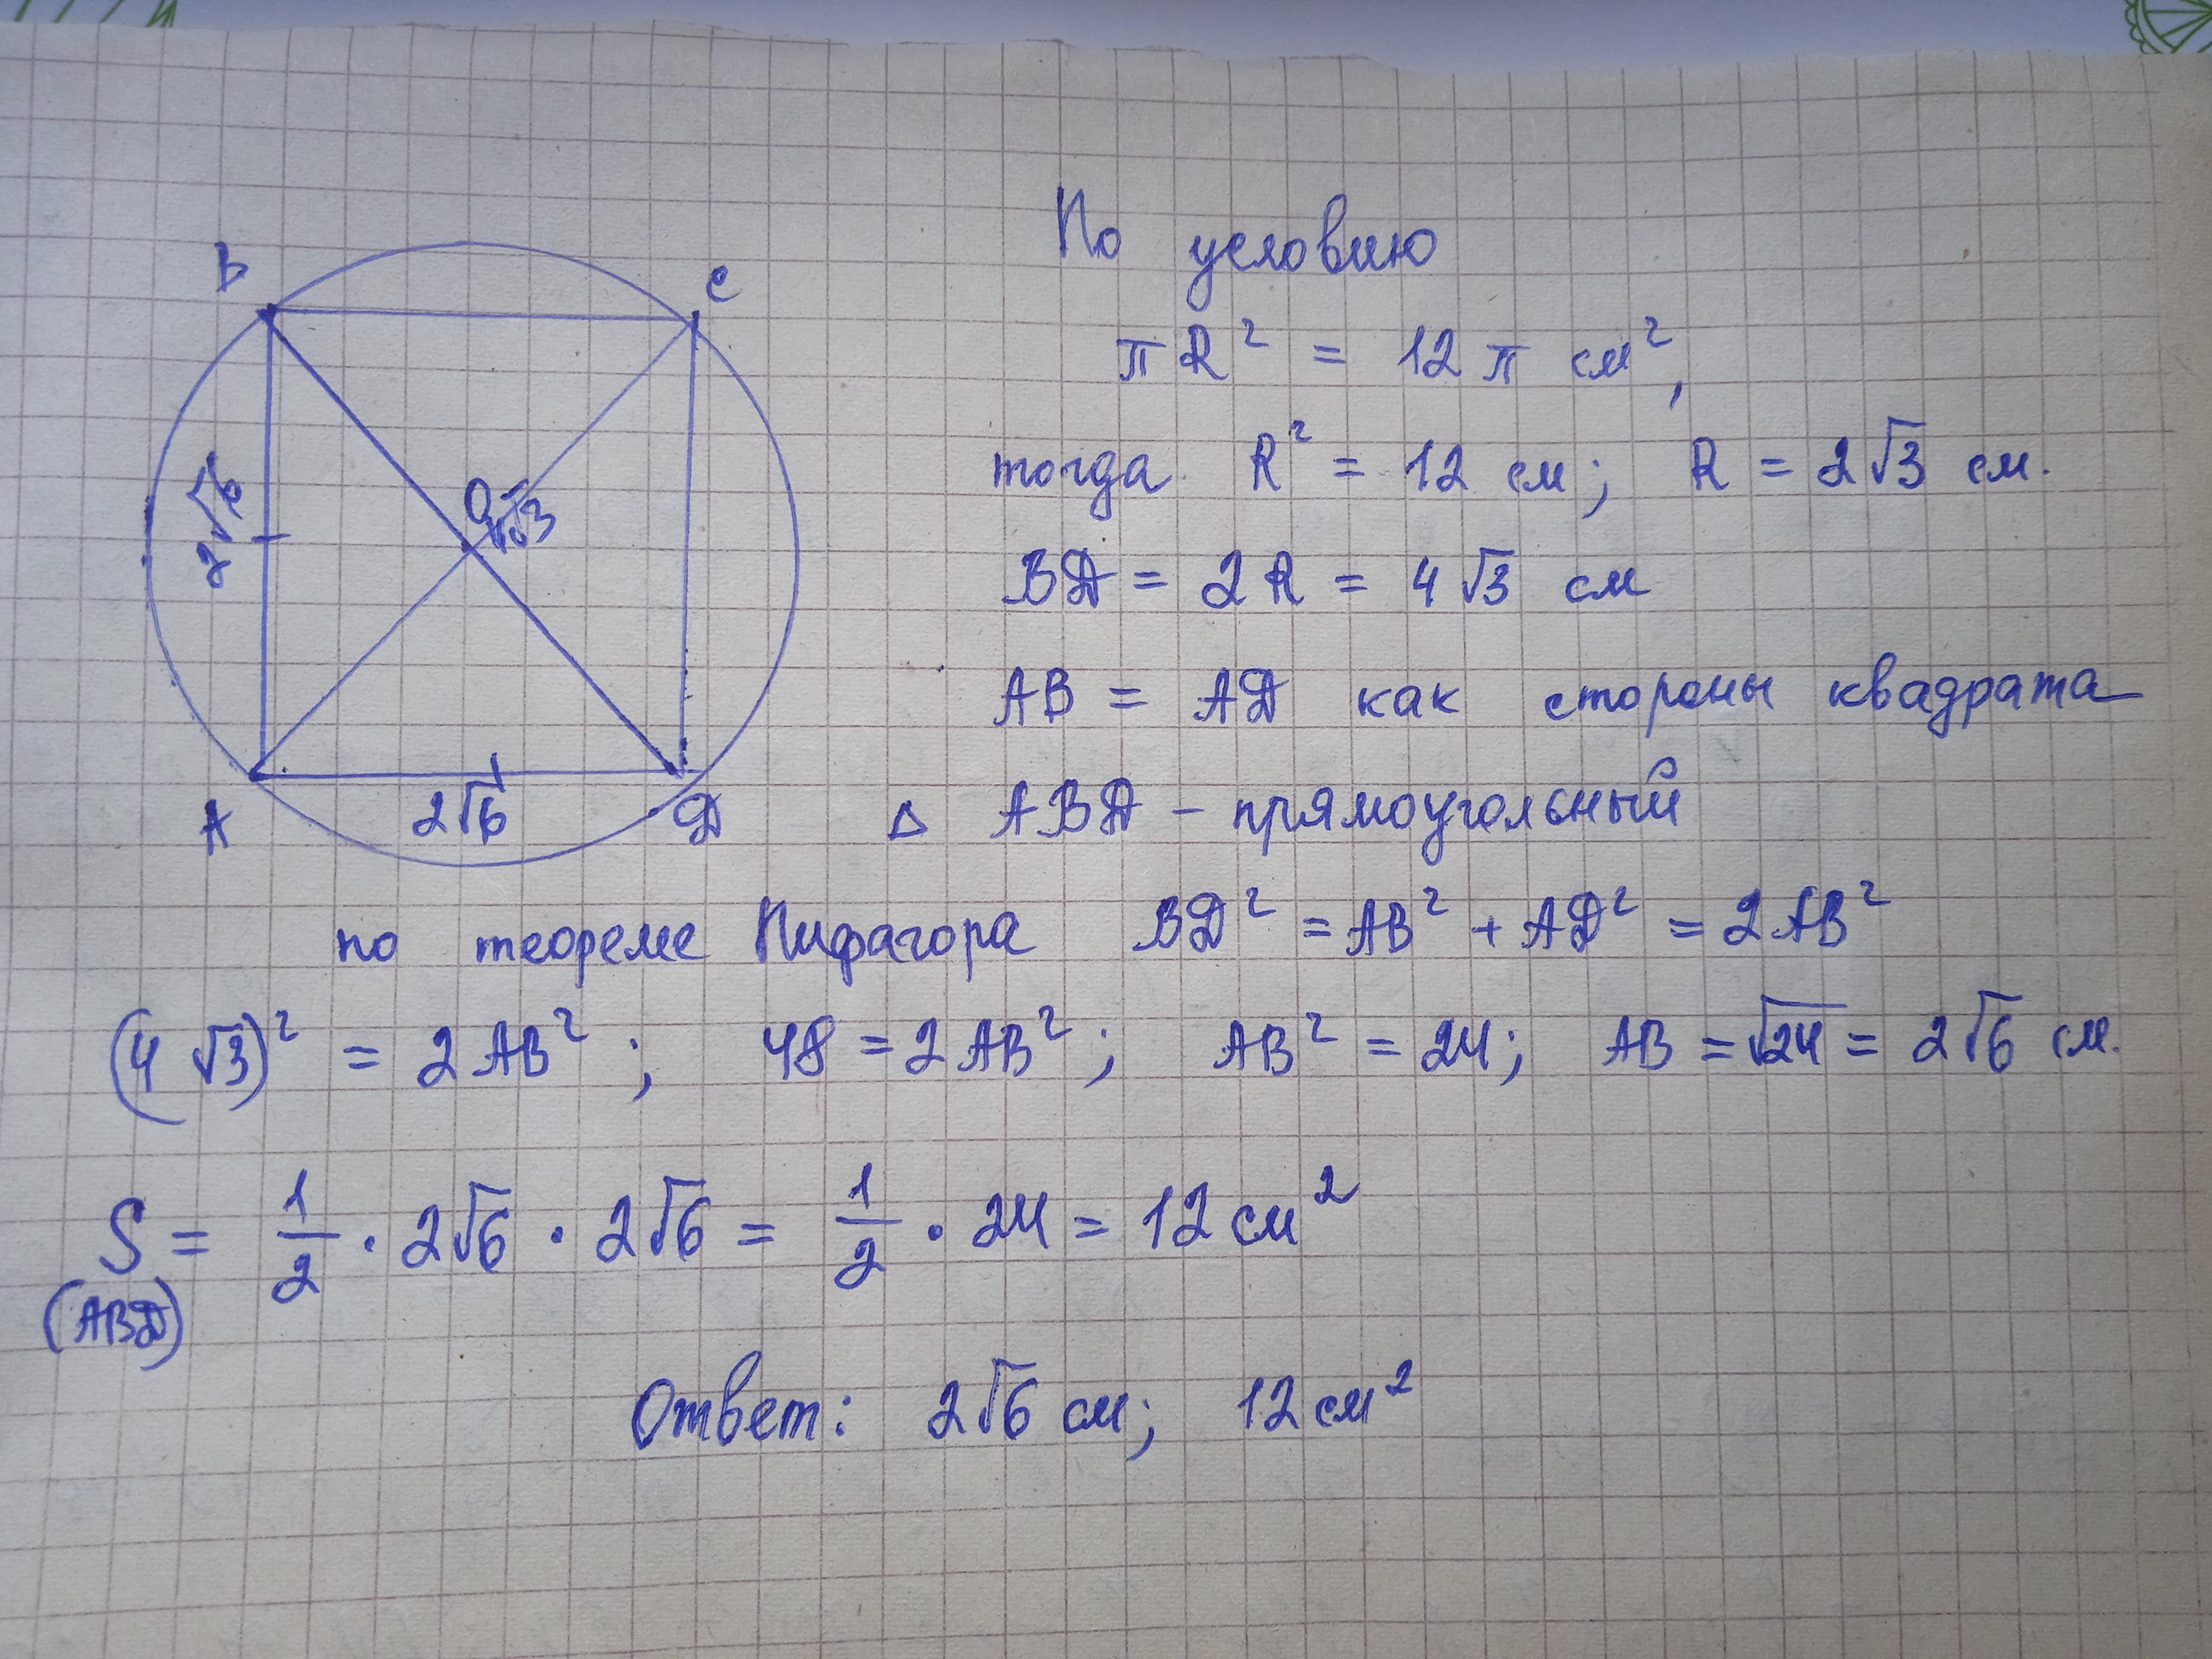 B
C
2√6
O
4√3
A
2√6
Д
По условию
πR² = 12π см²,
тогда R² = 12 см; R = 2√3 см.
BД = 2R = 4√3 см
AB = AД как стороны квадрата
Δ ABД - прямоугольный
по теореме Пифагора BД² = AB² + AД² = 2AB²
(4√3)² = 2AB²; 48 = 2AB²; AB² = 24; AB = √24 = 2√6 см.
S = 1/2 · 2√6 · 2√6 = 1/2 · 24 = 12 см²
(ABД)
Ответ: 2√6 см; 12 см²